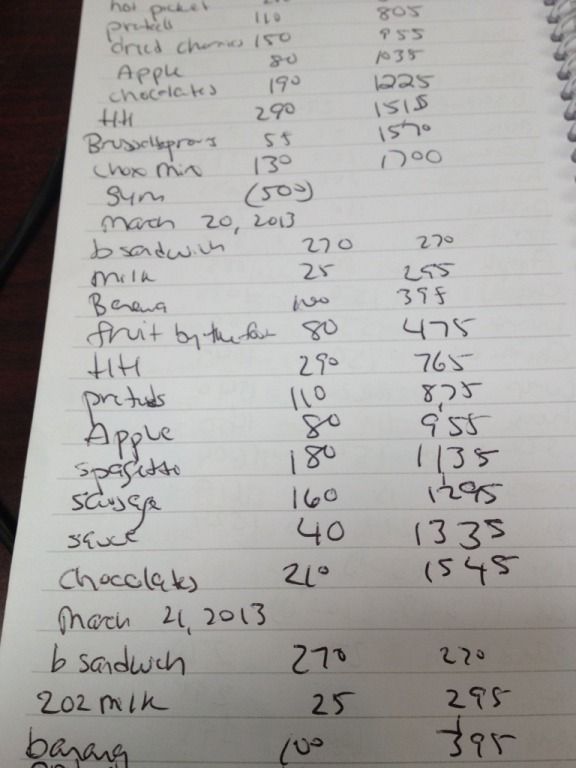 hot pocket
pretzels 110 805
dried cherries 150 955
Apple 80 1035
chocolates 190 1225
HH 290 1515
Brusselsprouts 55 1570
Chex mix 130 1700
Gym (500)
March 20, 2013
b sandwich 270 270
milk 25 295
Banana 100 395
fruit by the foot 80 475
HH 290 765
pretzels 110 875
Apple 80 955
spagetto 180 1135
sausage 160 1295
sauce 40 1335
Chocolates 210 1545
March 21, 2013
b sandwich 270 270
2oz milk 25 295
banana 100 395